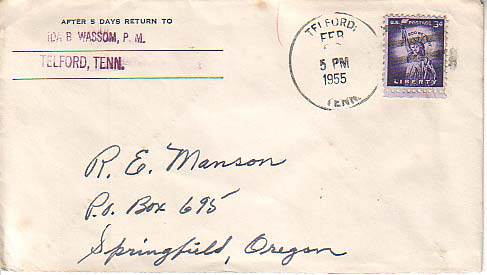 AFTER 5 DAYS RETURN TO
IDA B WASSOM, P. M.
TELFORD, TENN.
TELFORD,
FEB
5 PM
1955
TENN.
U.S. POSTAGE 3¢
LIBERTY
R. E. Manson
P.O. Box 695
Springfield, Oregon